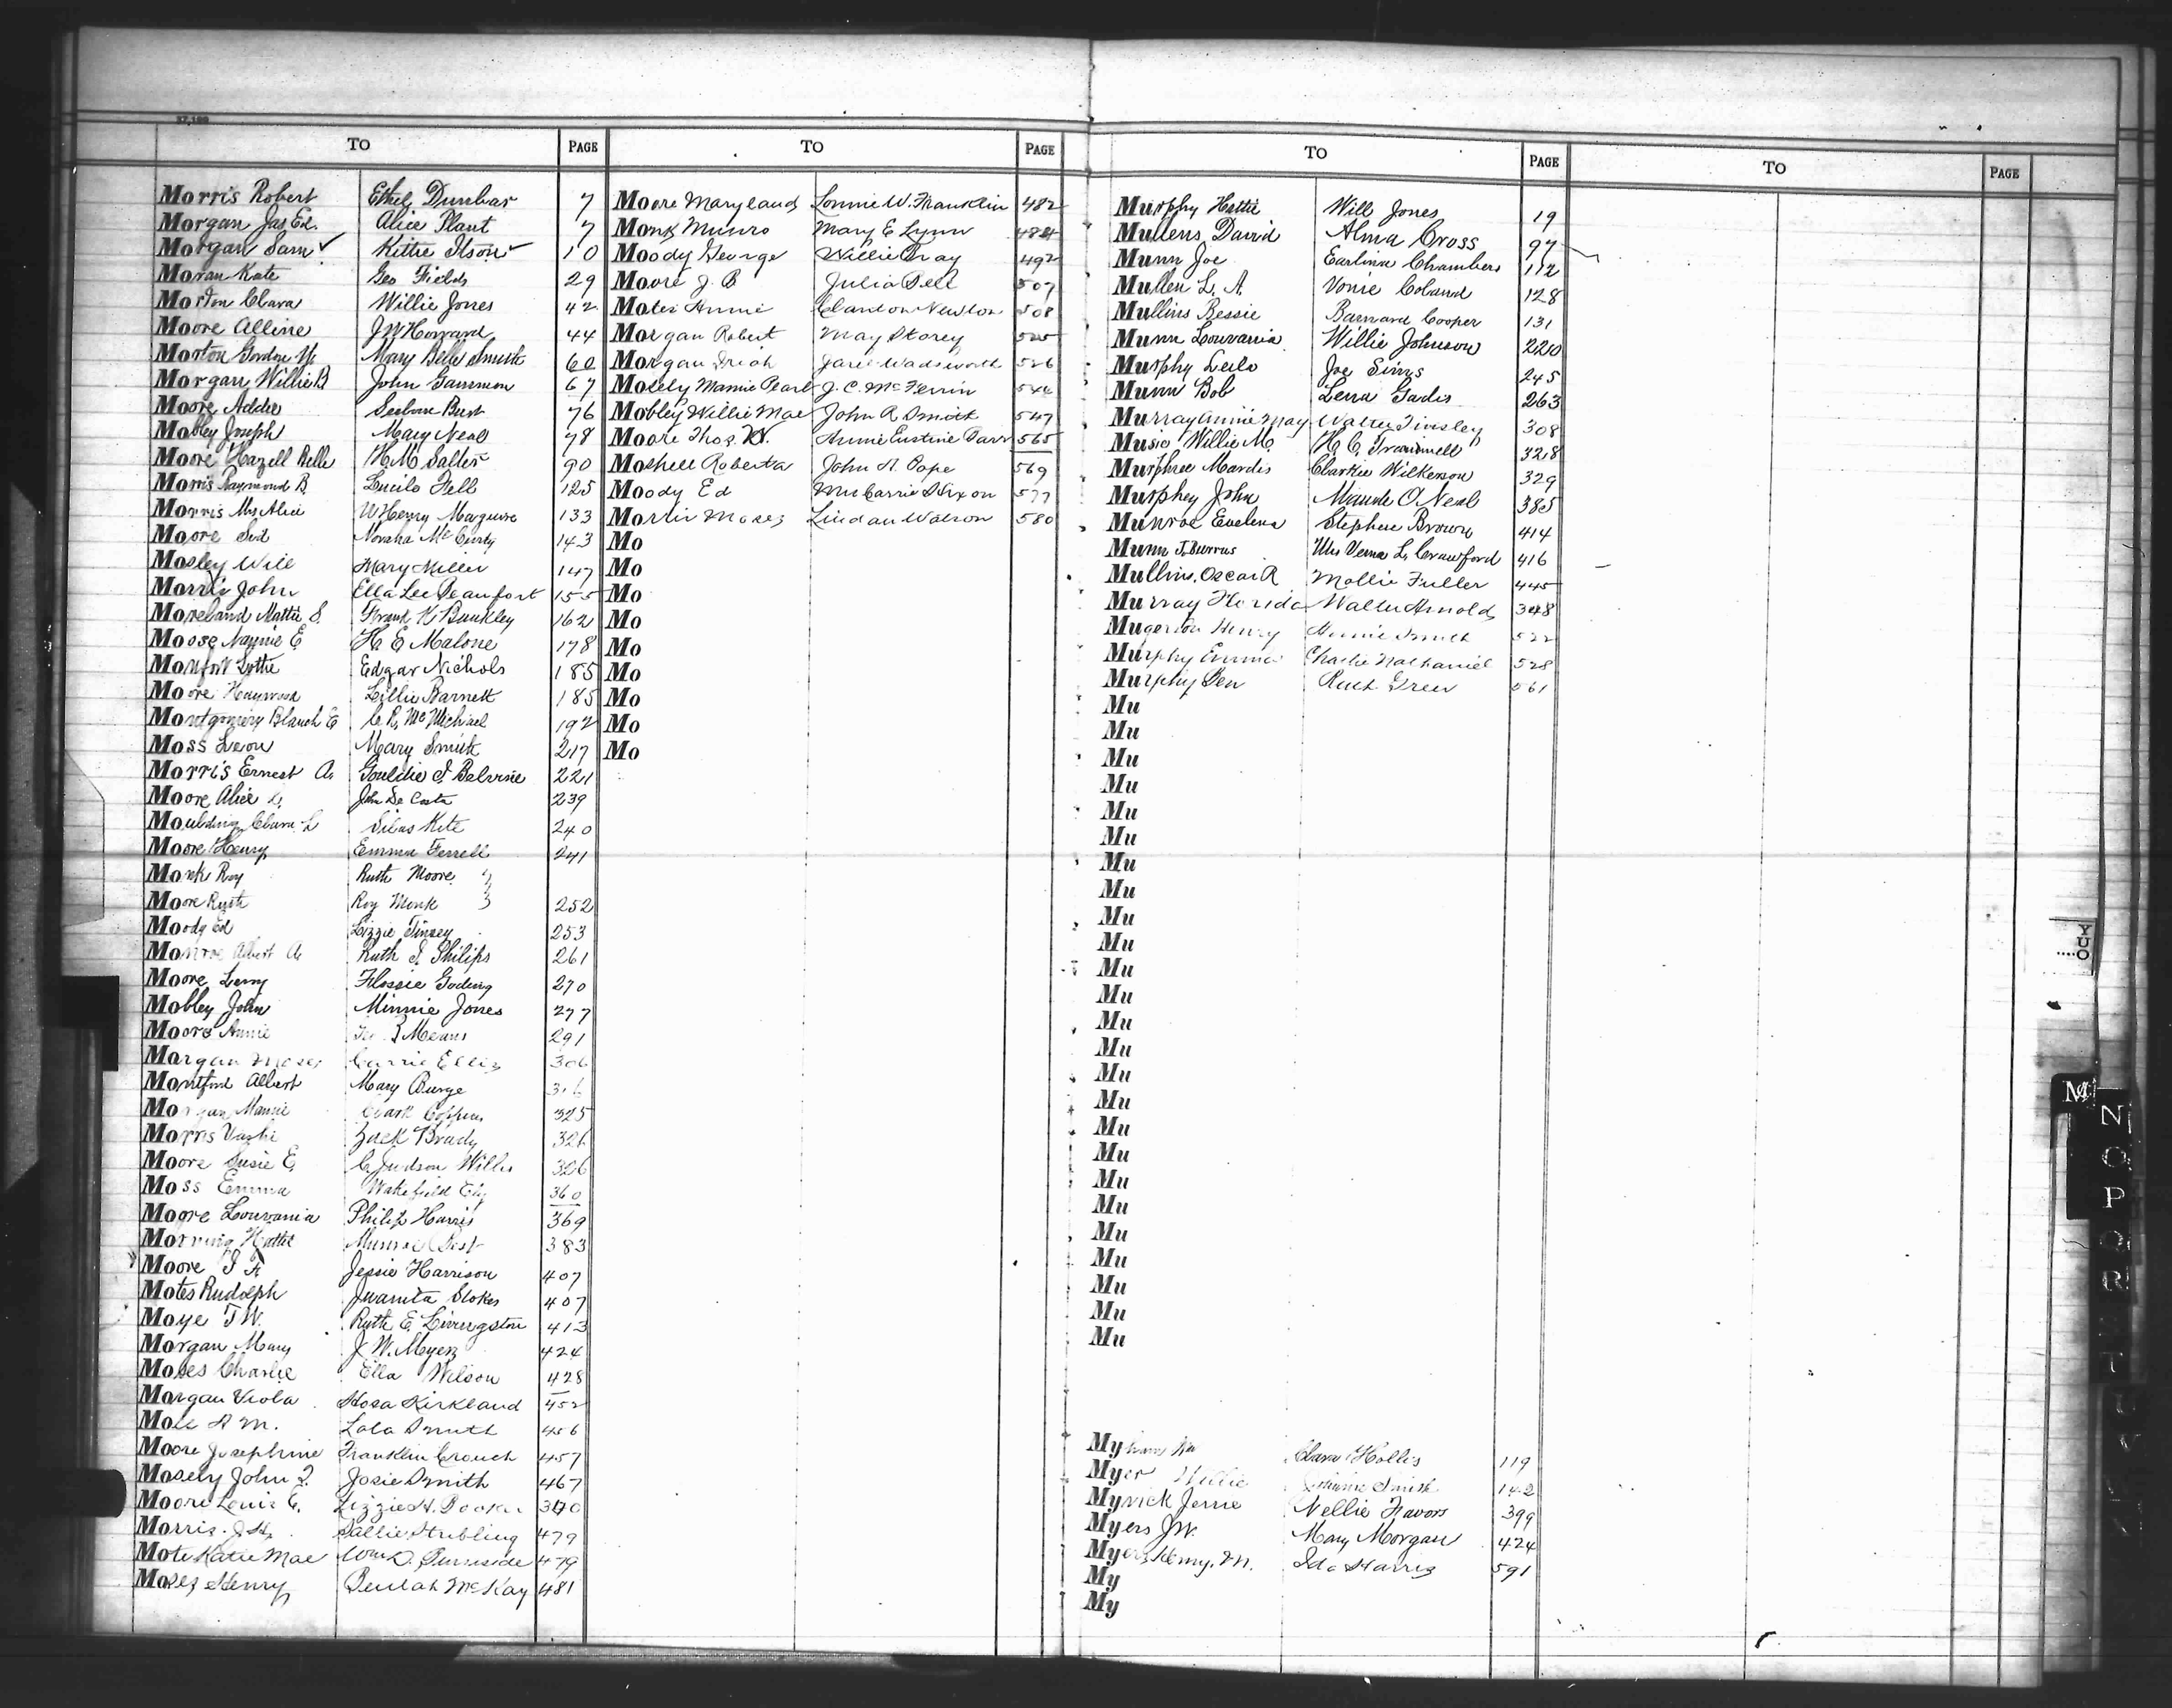 37,100
TO PAGE
Morris Robert Ethel Dunbar 7
Morgan Jas Ed. Alice Plant 7
Morgan Sam ✓ Kittie Ilson ✓ 10
Moran Kate Geo Fields 29
Morton Clara Willie Jones 42
Moore Alline J W Howard 44
Morton Gordon Mary Belle Smith 60
Morgan Willie B John Gammon 67
Moore Addie 76
Mobley Joseph Mary Neal 78
Moore Hazell Belle H M Salter 90
Morris Raymond B Lucile Fell 125
Morris Mrs Alice W Henry Maguire 133
Moore Sid Mc Curty 143
Mosley Will Mary Miller 147
Morris John Ella Lee Beaufort 155
Moreland Mattie S. Frank K Bunkley 162
Moose Nannie E H E Malone 178
Monfort Lottie Edgar Nichols 185
Moore Haywood Lillie Barnett 185
Montgomery Blanch E C R McMichael 192
Moss Leon Mary Smith 217
Morris Ernest A. 221
Moore Alice L. John De Costa 239
Moulding Clara L Silas Kite 240
Moore Henry Emma Ferrell 241
Monk Roy Ruth Moore }
Moore Ruth Roy Monk } 252
Moody Ed Lizzie Tinsey 253
Monroe Albert A Ruth I. Philips 261
Moore Leroy Flossie Goding 270
Mobley John Minnie Jones 277
Moore Annie Means 291
Morgan Moses Carrie Ellis 306
Montford Albert Mary Burge
Morgan Mamie Clark 325
Morris Vashi Zack Brady 326
Moore Susie E. C. Judson Willis 326
Moss Emma Wakefield Ely 360
Moore Louvania Philip Harris 369
Morning Hattie Munroe 383
Moore Jessie Harrison 407
Motes Rudolph Juanita Stokes 407
Moye T W. Ruth E Livingston 413
Morgan Mary J. W. Myers 424
Moses Charlie Ella Wilson 428
Morgan Viola Hosa Kirkland 452
M. Lola Smith 456
Moore Josephine Franklin Crouch 457
Mosely John Josie Smith 467
Moore Louis E. Lizzie H. 340
Morris J. H. Sallie Stribling 479
Mote Katie Mae Wm D. Burnside 479
Moses Henry Beulah McKay 481
TO PAGE
Moore Maryland Lonnie W. Franklin 482
Monk Munro Mary E Lynn 484
Moody George Willie Bray 492
Moore J. B Julia Bell 507
Motes Annie Clandon Newton 508
Morgan Robert May Storey 525
Morgan Janie Wadsworth 526
Mosely Mamie Pearl J. C. McFerrin
Mobley Willie Mae John R Smith 547
Moore Thos. W. Annie Eustine 565
Moshell Roberta John H. Pope 569
Moody Ed Mrs Carrie Hixon 577
Moses Watson 580
Mo
Mo
Mo
Mo
Mo
Mo
Mo
Mo
Mo
TO PAGE
Murphy Hattie Will Jones 19
Mullens David Alma Cross 97
Munn Joe Earlina Chambers 112
Mullen L. A. Vonie Coland 128
Mullins Bessie Barnard Cooper 131
Munn Louvania Willie Johnson 220
Murphy Leila Joe Sims 245
Munn Bob Lena Gadis 263
Murray Annie May Walter Tinsley 308
Music Willie M. H. C. 328
Murphree Mardis Charlie Wilkerson 329
Murphey John Maude O. Neal 385
Munroe Evelena Stephen Brown 414
Munn J. Burrus Mrs Verna L. Crawford 416
Mullins, Oscar R Mollie Fuller 445
Murray Florida Walter Arnold 348
Mugerson Henry Annie Smith 522
Murphy Emma Charlie Nathaniel 528
Murphy Ben Ruth Green 561
Mu
Mu
Mu
Mu
Mu
Mu
Mu
Mu
Mu
Mu
Mu
Mu
Mu
Mu
Mu
Mu
Mu
Mu
Mu
Mu
Mu
Mu
Mu
Mu
Mu
My Clara Hollis 119
Myer Willie Smith 142
Myrick Jerrie Nellie Favors 399
Myers J W. Mary Morgan 424
Myers Henry. M. Ida Harris 591
My
My
TO PAGE